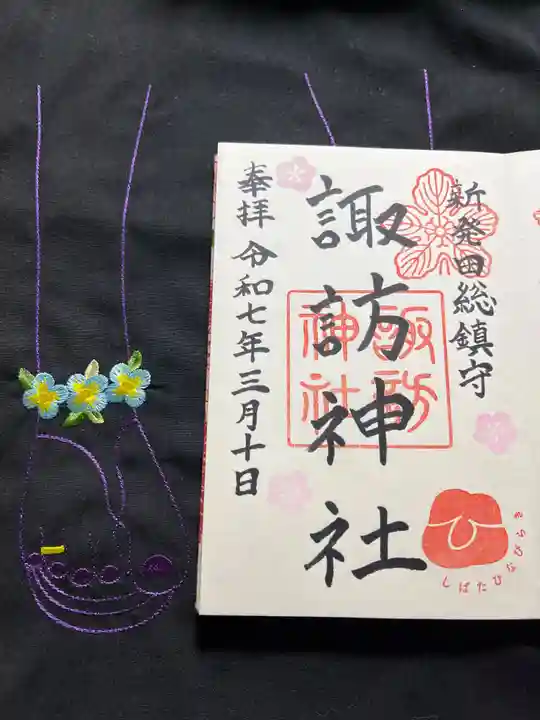 新発田総鎮守
諏訪神社
諏訪神社
奉拝 令和七年三月十日
ひ
しばたひなひらき